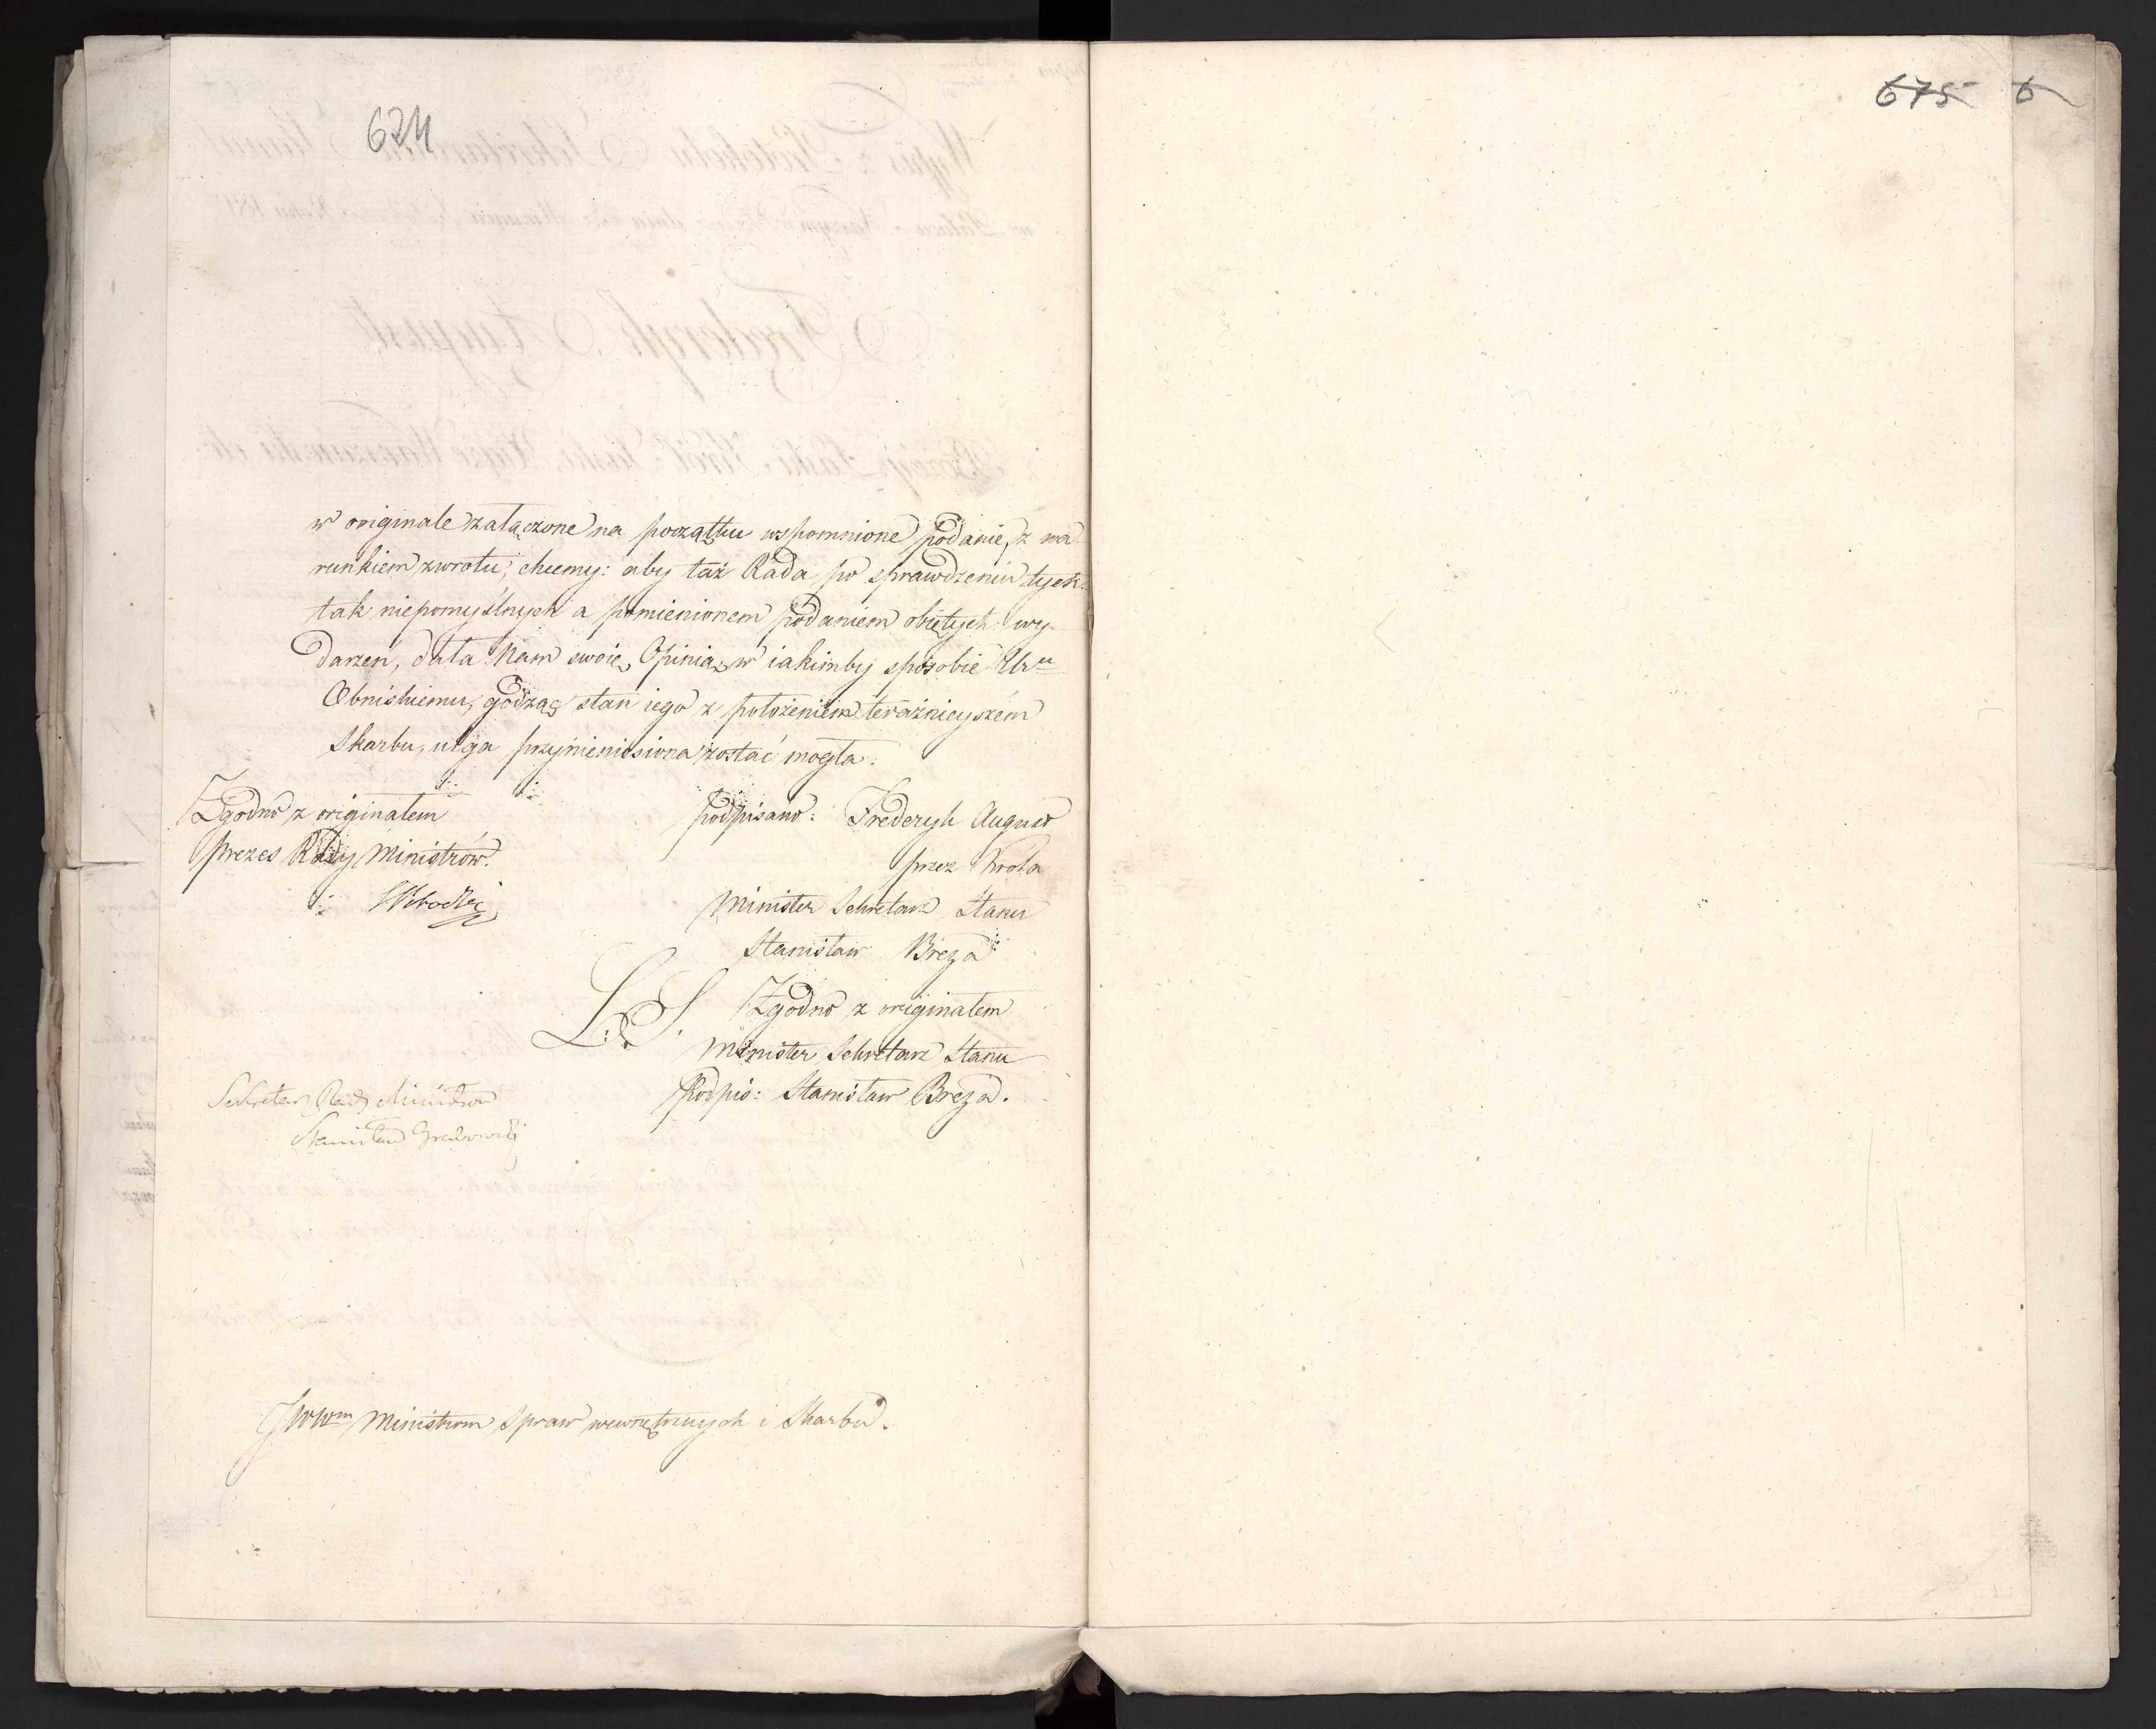 674
675 6
w originale załączone na początku wspomnione podanie, z wa-
runkiem zwrotu, chcemy: aby taż Rada po sprawdzeniu tych
tak niepomyślnych a pomienionem podaniem obiętych wy-
darzeń, dała Nam swoię Opinią, w iakimby sposobie Ur
Obniskiemu, godząc stan iego z położeniem teraźnieyszém
Skarbu, ulga przynieniesiona zostać mogła.
Zgodno z originałem
Prezes Rady Ministrów.
podpisano: Frederyk August
przez Króla
Minister Sekretarz Stanu
Stanisław Breza
L. S. Zgodno z originałem
Minister Sekretarz Stanu
Podpis: Stanisław Breza.
Sekretarz Rady Ministrów
Stanisław Grabowski
JWWm Ministrom Spraw wewnętrznych i Skarbu.